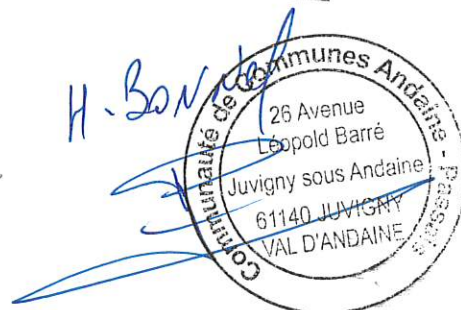 H. BONNEL
Communauté de Communes Andaine - Passais
26 Avenue
Léopold Barré
Juvigny sous Andaine
61140 JUVIGNY
VAL D'ANDAINE